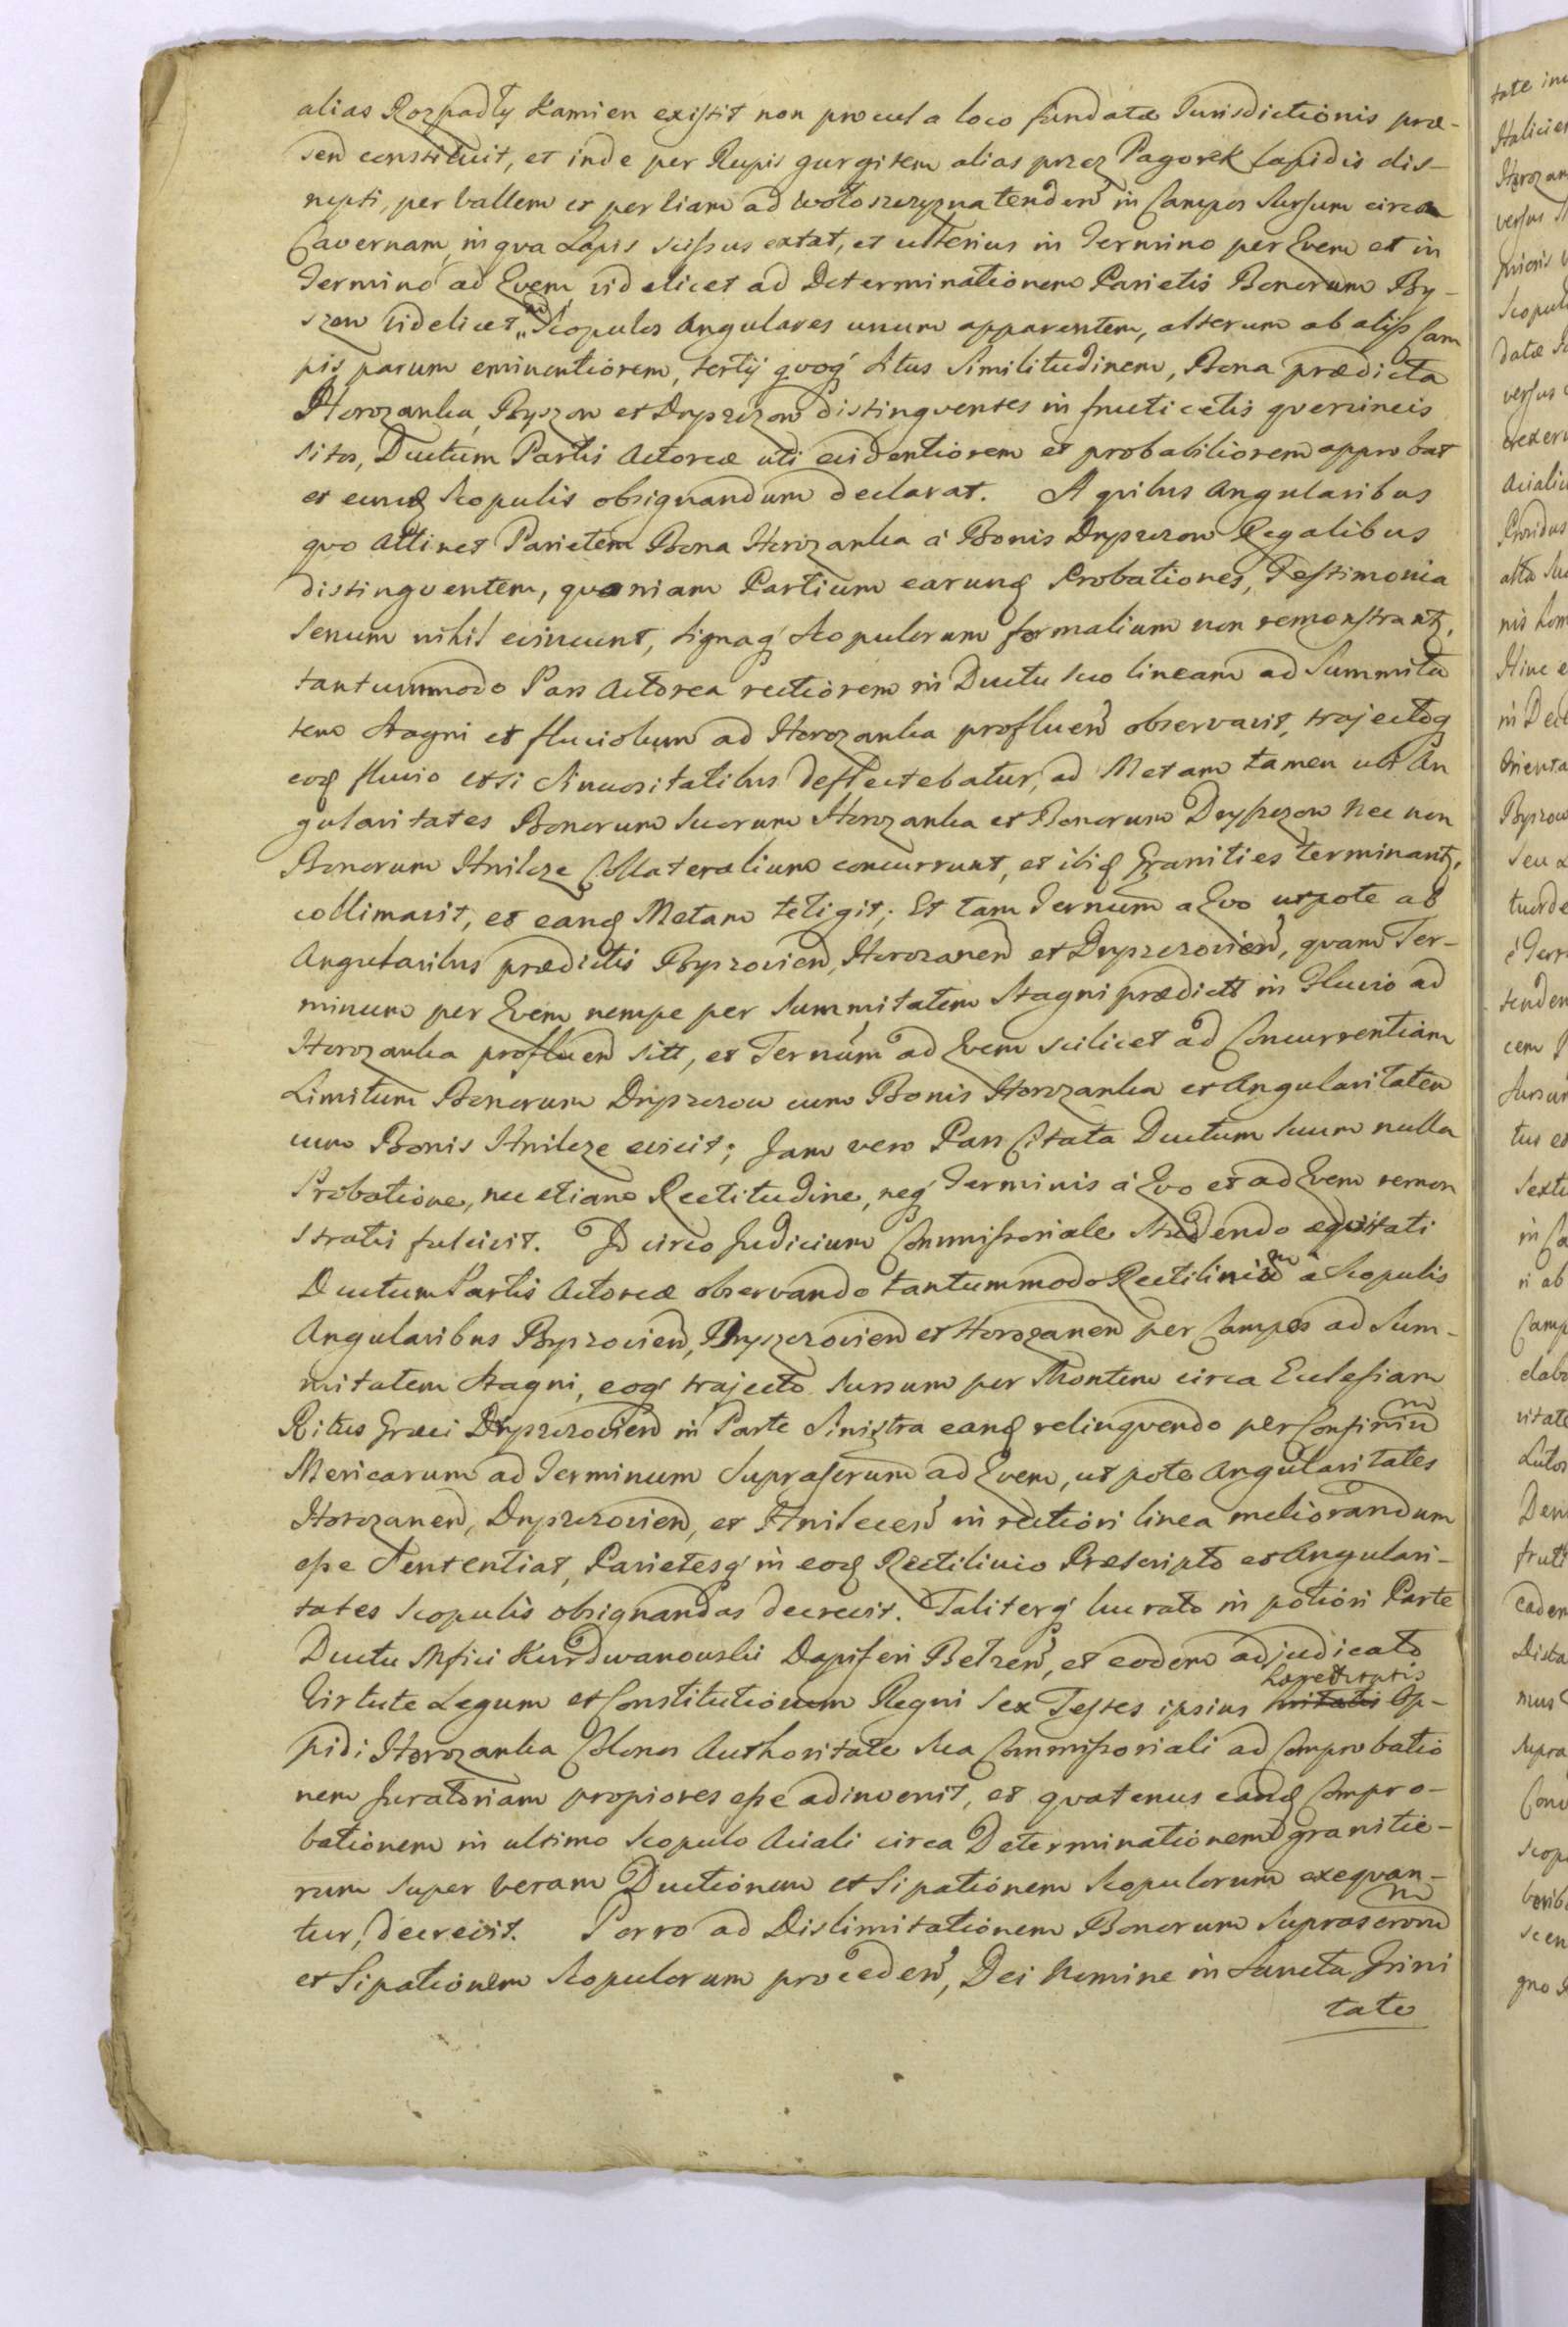 alias Rozpadły Kamien existit non procul a loco fundatæ Jurisdictionis præ-
sen constituit, et inde per Rupis gurgitem alias przez Pagorek lapidis dis-
rupti, per vallem et per viam ad Wołoszczyzna tenden in Campos sursum circa
Cavernam, in qva Lapis scissus extat, et ulterius in Termino per Qvem et in
Termino ad Qvem, videlicet ad Determinationem Parietis Bonorum By-
szow videlicet ad Scopulos Angulares unum apparentem, alterum ab alijs Cam
pis parum eminentiorem, tertij qvoq situs Similitudinem, Bona prædicta
Horozanka, Byszow et Dryszczow distingventes in fruticetis qvercineis
sitos, Ductum Partis Actoreæ uti evidentiorem et probabiliorem approbat
et eund Scopulis obsignandum declarat. A qvibus Angularibus
qvo attinet Parietem Bona Horozanka á Bonis Dryszczow Regalibus
distingventem, qvoniam Partium earund Probationes, Testimonia
Senum nihil evincunt, signaq Scopulorum formalium non remonstrant,
tantummodo Pars Actorea rectiorem in Ductu suo lineam ad Summita
tem Stagni et fluviolum ad Horozanka profluen observavit, trajectoq
eod fluvio etsi Sinuositatibus deflectebatur, ad Metam tamen ubi An
gularitates Bonorum Suorum Horozanka et Bonorum Dryszczow nec non
Bonorum Hnilcze Collateralium concurrunt, et ibid Granities terminant,
collimavit, et eand Metam tetigit; Et tam Ternum a Qvo utpote ab
Angularibus prædictis Byszovien, Horozanen et Dryszczovien, qvam Ter-
minum per Qvem nempe per Summitatem Stagni prædicti in Fluvio ad
Horozanka profluen siti, et Ternum ad Qvem scilicet ad Concurrentiam
Limitum Bonorum Dryszczow cum Bonis Horozanka et Angularitatem
cum Bonis Hnilcze evicit; Jam vero Pars Citata Ductum suum nulla
Probatione, nec etiam Rectitudine, neq Terminis á Qvo et ad Qvem remon
stratis fulcivit. Id circo Judicium Commissoriale studendo eqvitati
Ductum Partis Actoreæ observando tantummodo Rectilinium a Scopulis
Angularibus Byszovien, Dryszczovien et Horozanen per Campos ad Sum-
mitatem Stagni, eoq trajecto sursum per Montem circa Ecclesiam
Ritus Græci Dryszczovien in Parte Sinistra eand relinqvendo per Confinium
Mericarum ad Terminum Suprascrum ad Qvem, ut pote Angularitates
Horozanen, Dryszczovien, et Hnilecen in rectiori linea meliorandum
esse Sententiat, Parietesq in eod Rectilinio Præscripto et Angulari-
tates Scopulis obsignandas decrevit. Taliterq lucrato in potiori Parte
Ductu Mfici Kurdwanowski Dapiferi Belzen, et eodem adjudicato
Virtute Legum et Constitutionum Regni Sex Testes ipsius Hæreditatis Op-
pidi Horozanka Colonos Authoritate sua Commissoriali ad Comprobatio
nem Juratoriam propiores esse adinvenit, et qvatenus eand Compro-
bationem in ultimo Scopulo Aciali circa Determinationem granitie-
rum super veram Ductionem et Sipationem Scopulorum exeqvan-
tur, decrevit. Porro ad Dislimitationem Bonorum Suprascrorum
et Sipationem Scopulorum proceden, Dei Nomine in Sancta Trini
tate